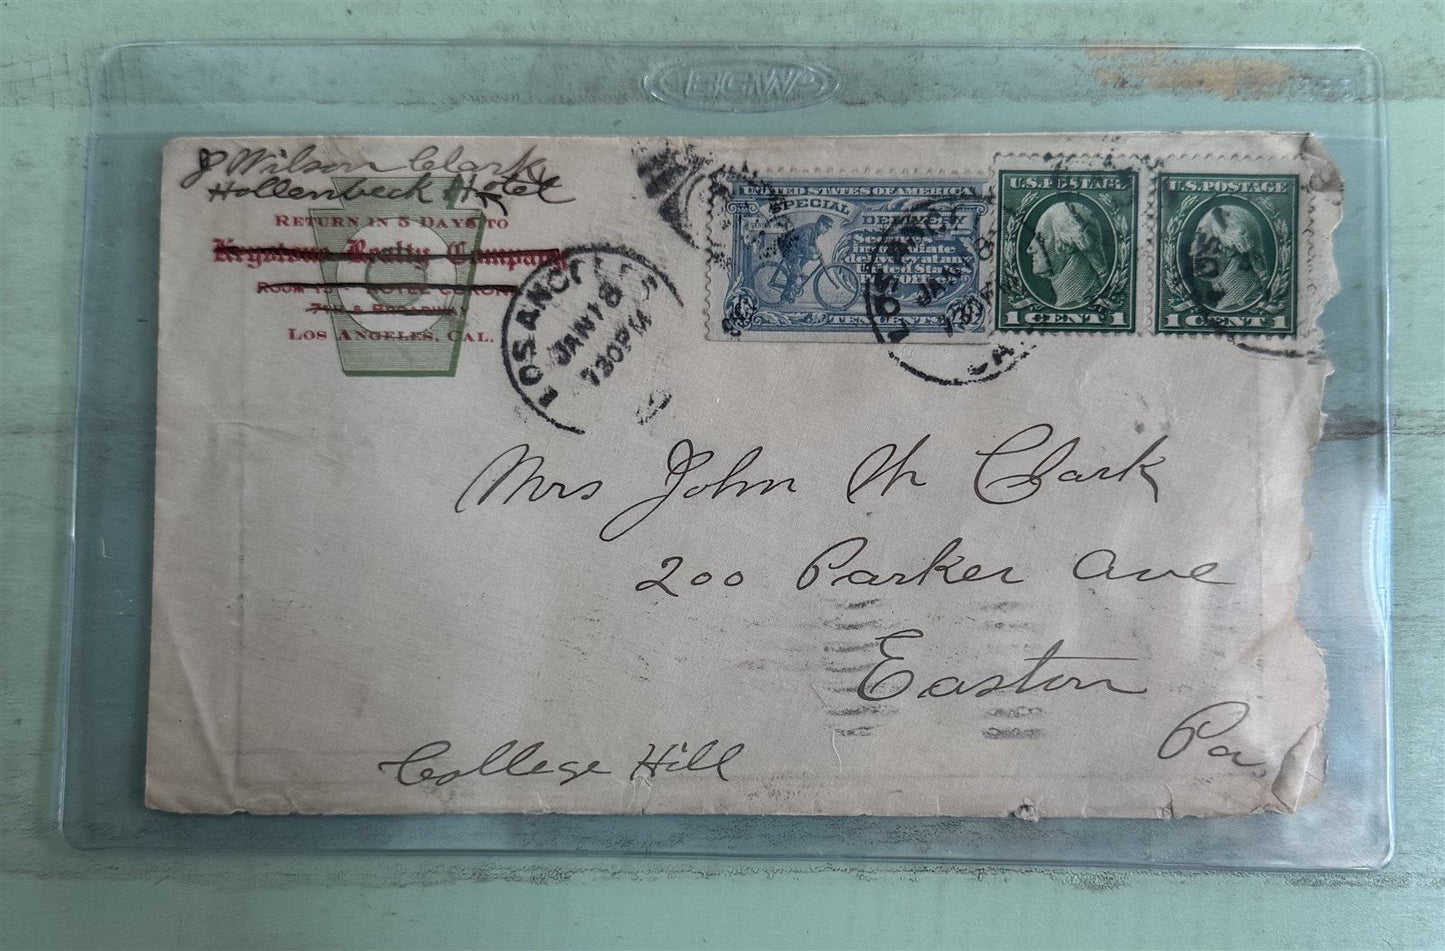 BCW
J Wilson Clark
Hollenbeck Hotel
RETURN IN 5 DAYS TO
Keystone Realty Company
ROOM HOTEL
7TH & BROADWAY
LOS ANGELES, CAL.
LOS ANGELES
JAN 18
730PM
UNITED STATES OF AMERICA
SPECIAL DELIVERY
Secures
immediate
delivery at any
United States
Post Office
TEN CENTS
LOS ANGELES
JAN 18
730PM
CAL
U.S. POSTAGE
1 CENT 1
U.S. POSTAGE
1 CENT 1
Mrs John W Clark
200 Parker Ave
Easton
Pa
College Hill